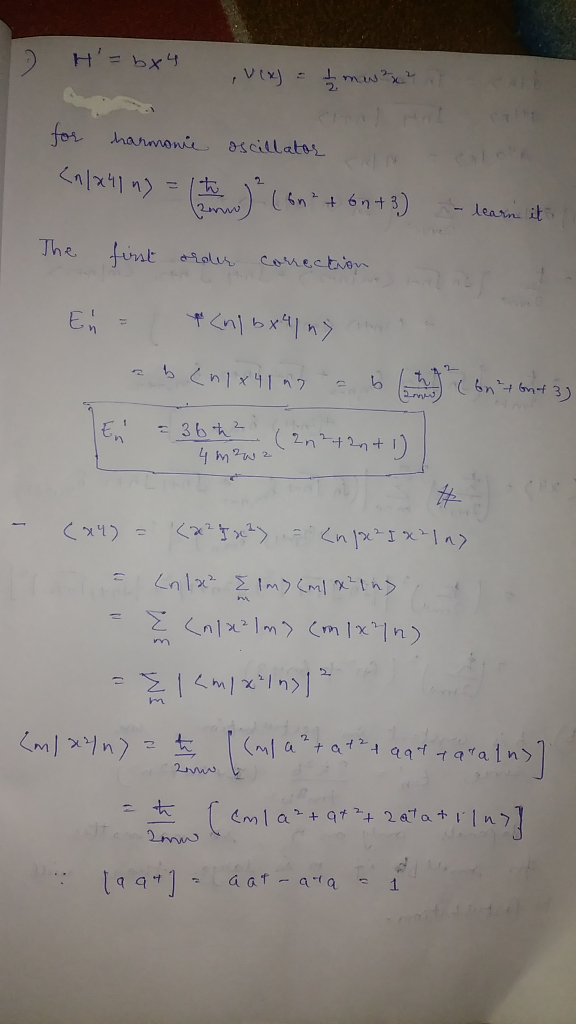 ) H' = bx⁴ , V(x) = 1/2 mω²x²
for harmonic oscillator
<n|x⁴|n> = (ħ/2mω)² (6n² + 6n + 3) - learn it
The first order correction
Eₙ' = <n|bx⁴|n>
= b <n|x⁴|n> = b (ħ/2mω)² (6n² + 6n + 3)
Eₙ' = 3bħ²/4m²ω² (2n² + 2n + 1)
#
- <x⁴> = <x² I x²> = <n|x² I x²|n>
= <n|x² Σₘ |m> <m|x²|n>
= Σₘ <n|x²|m> <m|x²|n>
= Σₘ |<m|x²|n>|²
<m|x²|n> = ħ/2mω [<m|a² + a†² + aa† + a†a|n>]
= ħ/2mω [<m|a² + a†² + 2a†a + 1|n>]
∵ [a a†] = aa† - a†a = 1